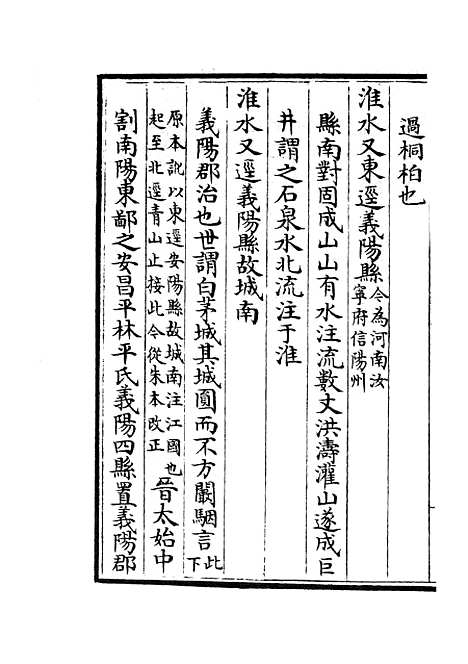 過桐柏也
淮水又東逕義陽縣今為河南汝寧府信陽州
縣南對固成山山有水注流數丈洪濤灌山遂成巨
井謂之石泉水北流注于淮
淮水又逕義陽縣故城南
義陽郡治也世謂白茅城其城圓而不方闞駰言此下
原本訛以東逕安陽縣故城南注江國也起至北逕青山止接此今從朱本改正晉太始中
割南陽東鄙之安昌平林平氏義陽四縣置義陽郡